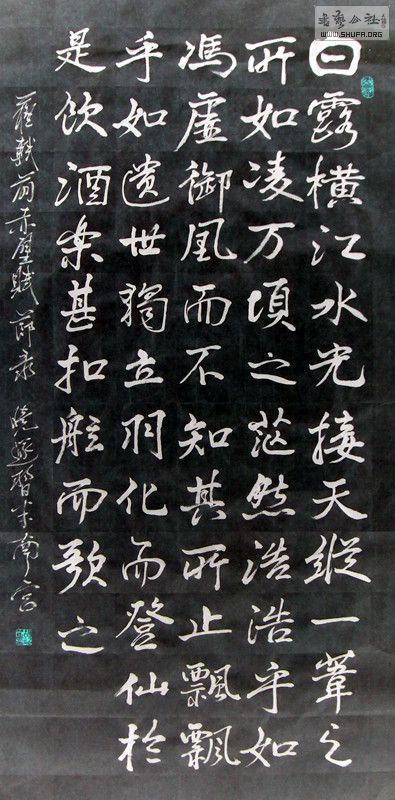 書藝公社
WWW.SHUFA.ORG
白露橫江水光接天縱一葦之
所如凌万頃之茫然浩浩乎如
馮虛御風而不知其所止飄飄
乎如遺世獨立羽化而登仙於
是飲酒樂甚扣舷而歌之
蘇軾前赤壁賦節录 習米南宮